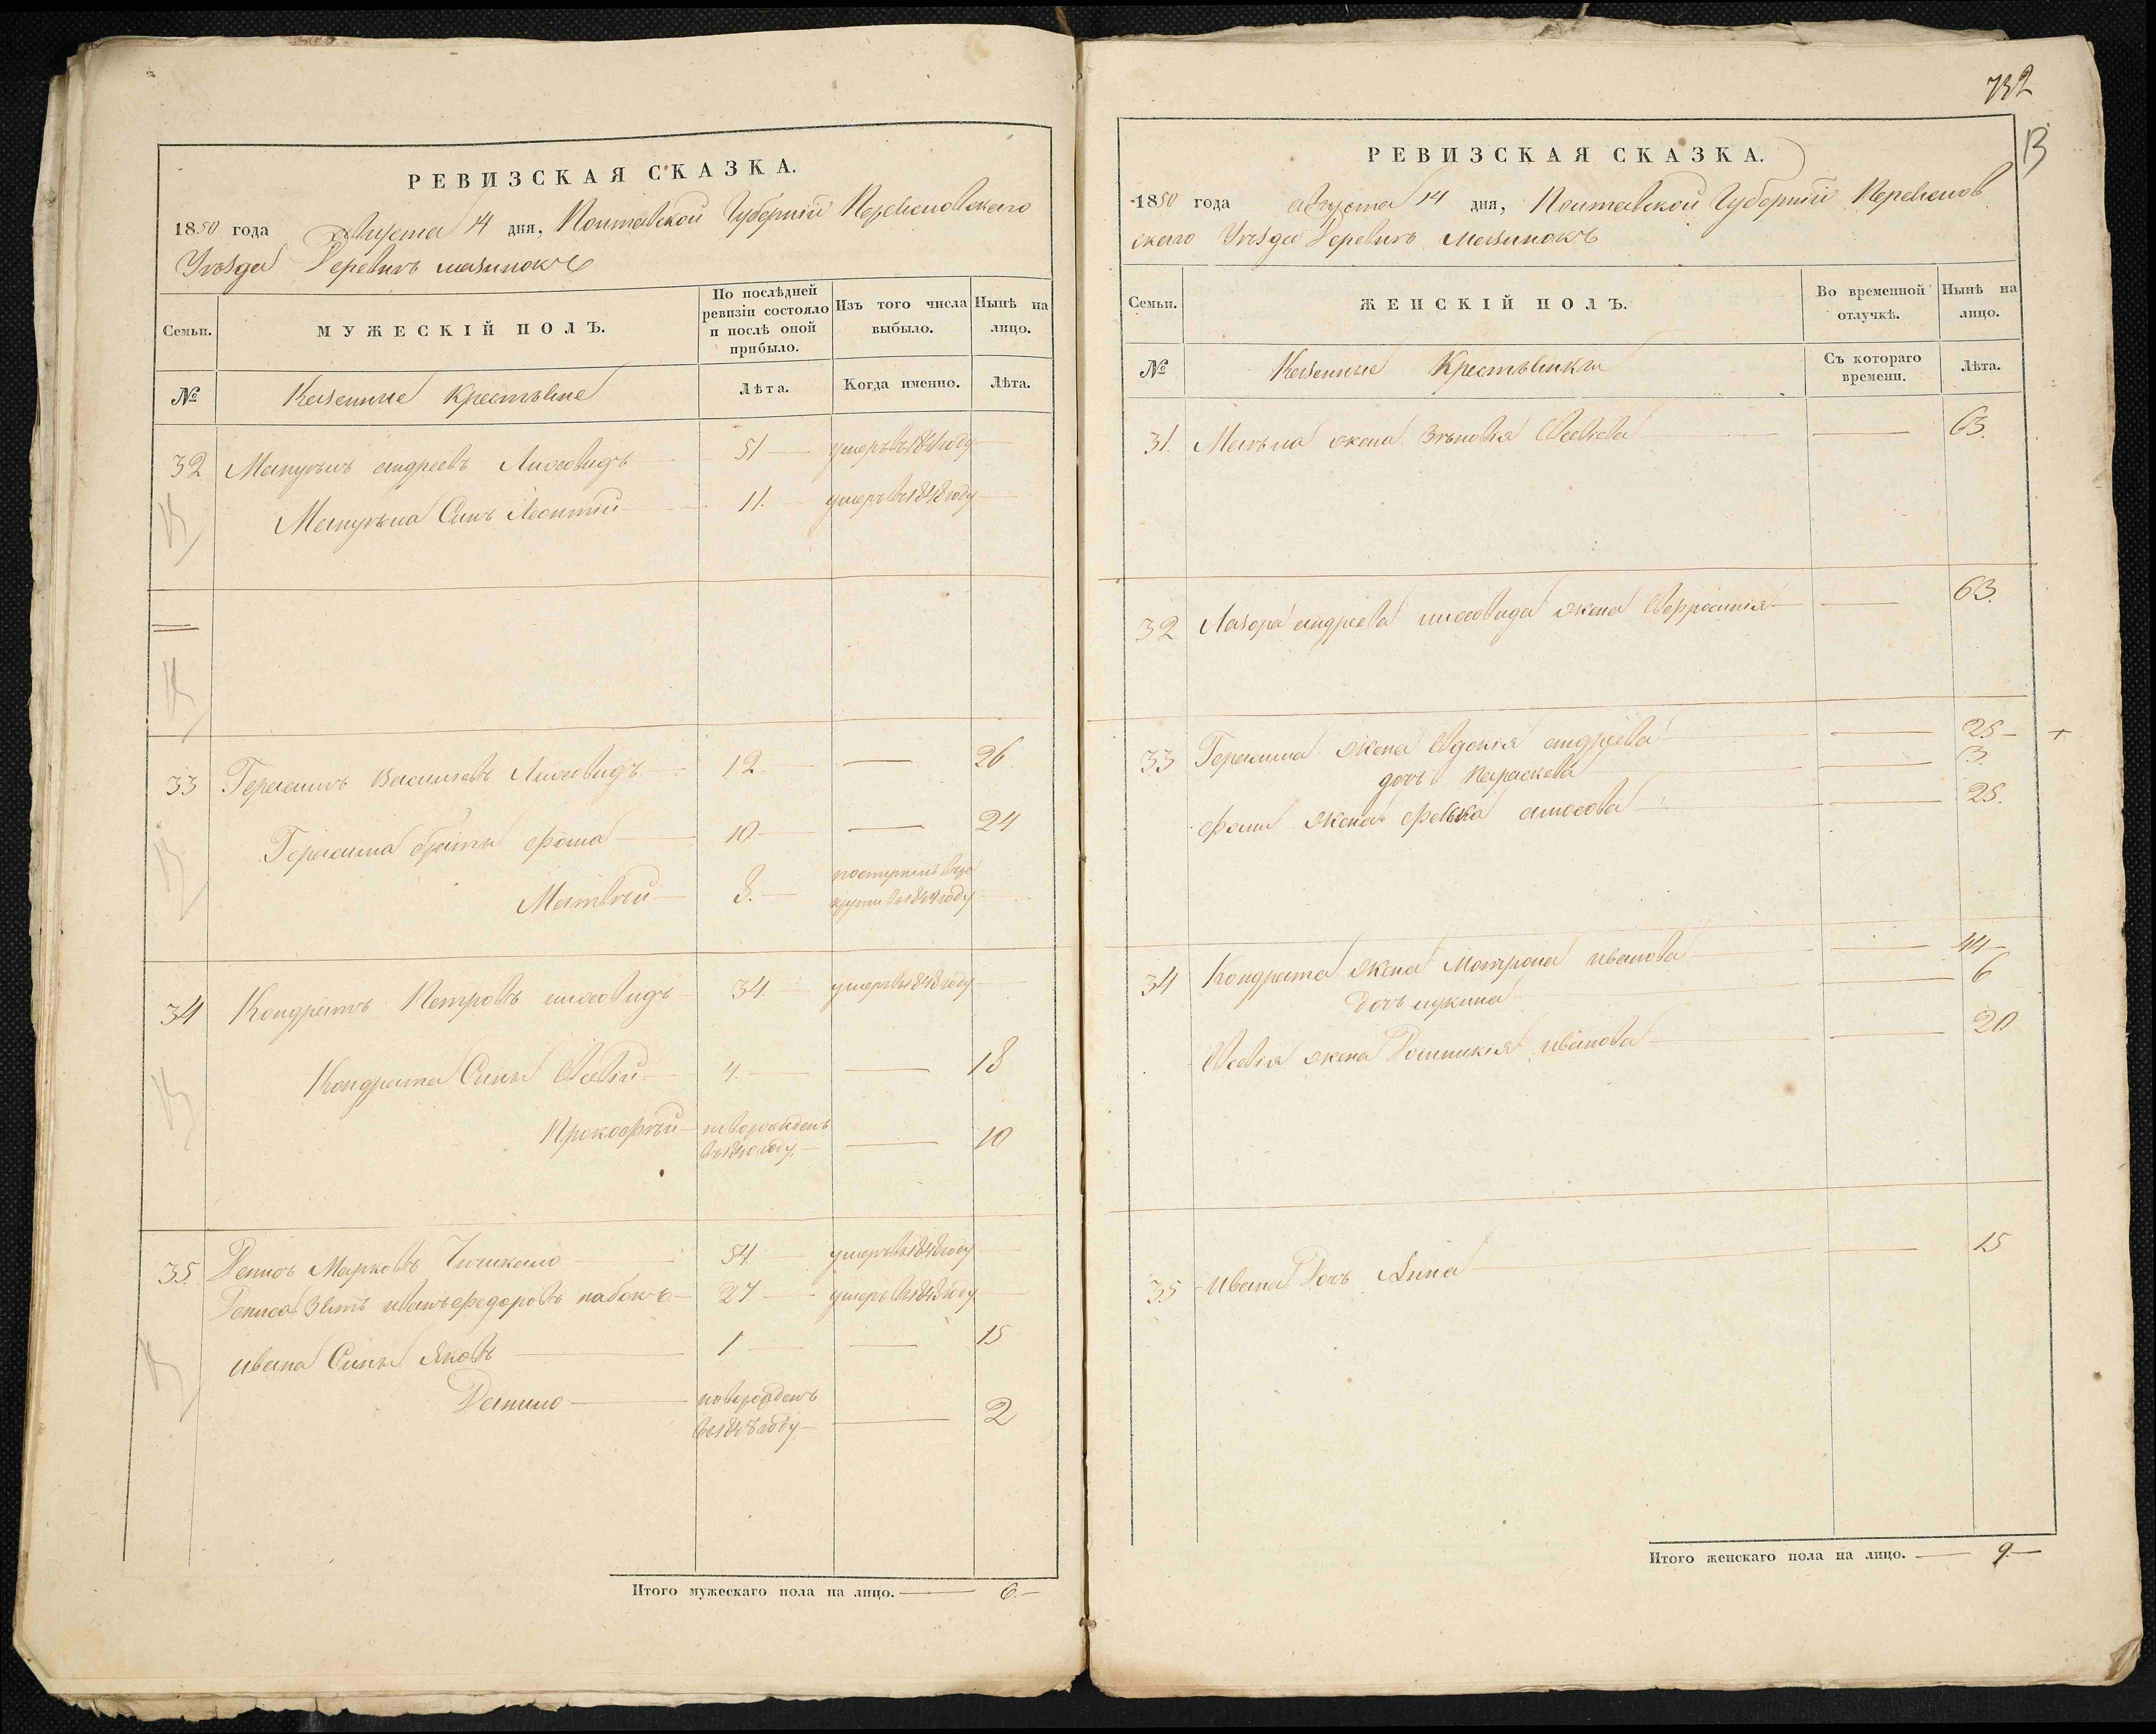 РЕВИЗСКАЯ СКАЗКА.
1850 года августа 14 дня, Полтавской Губернии Переясловскаго
Уезда Деревни
Семьи.
МУЖЕСКІЙ ПОЛЪ.
По послѣдней ревизіи состояло и послѣ оной прибыло.
Изъ того числа выбыло.
Нынѣ на лицо.
№
Казенные Крестьяне
Лѣта.
Когда именно.
Лѣта.
32 андреевъ Лисовидъ 51 умеръ въ году
Сынъ Леонтій 11. умеръ въ 1848 году
33 Герасимъ Васильевъ Лисовидъ 12 26
Герасима братья Фома 10 24
Матвей 8. поступилъ в ре
круты в году
34 Кондратъ Петровъ лисовидъ 34. умеръ в 1848 году
Кондрата Сыны Евсей 4. 18
Прокофей новорожденъ 10
въ 1840 году.
35. Денисъ Марковъ 54 умеръ в 1848 году
Дениса Зять иванъ федоровъ 27 умеръ в 1848 году
ивана Сыны Яковъ 1 15
Данило новорожденъ 2
в 1848 году
Итого мужескаго пола на лицо. 6.
732
13
РЕВИЗСКАЯ СКАЗКА.
1850 года августа 14 дня, Полтавской Губерніи Переяслов
скаго Уезда Деревни
Семьи.
ЖЕНСКІЙ ПОЛЪ.
Во временной отлучкѣ.
Нынѣ на лицо.
№
Казенные Крестьянки
Съ котораго времени.
Лѣта.
31. жена Зѣновія 63.
32 Лазора андреева лисовида жена Евфросинія 63.
33 Герасима жена Евдокія андреева 25
дочь Параскева 3
Фомы жена феська 25.
34 Кондрата жена Матрона иванова 44
Дочь 6
Евсея жена Домникія иванова 20
35 Ивана Дочь Анна 15
Итого женскаго пола на лицо. 9.